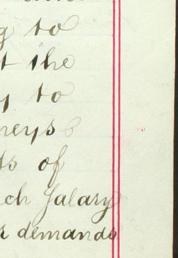 g to
t the
y to
neys
ts of
ch Salary
s demands